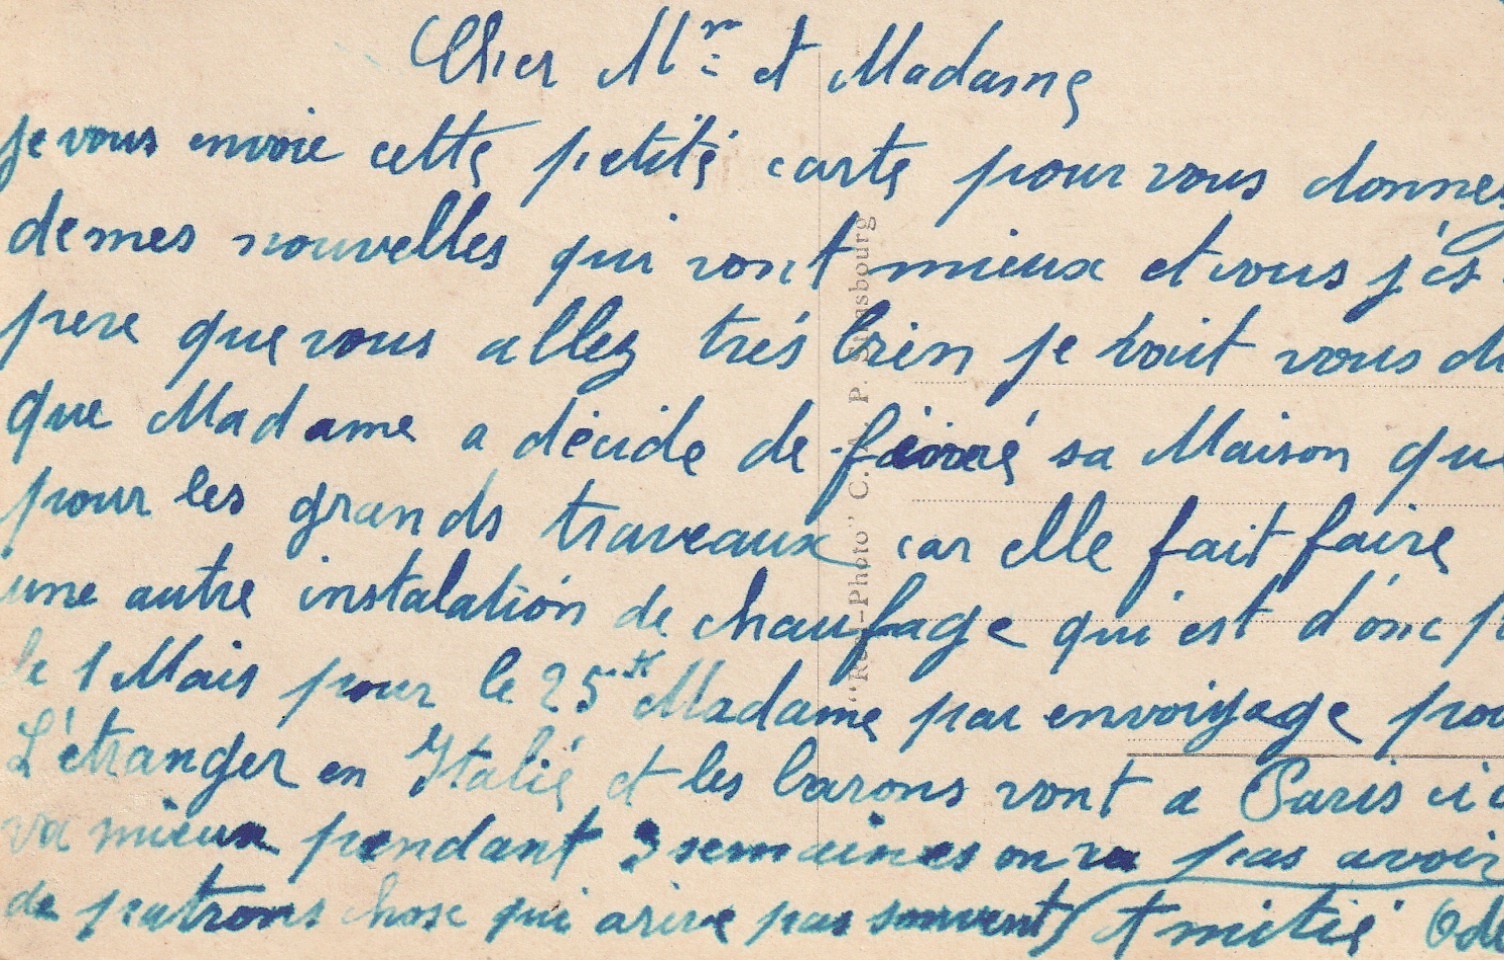 Cher Mr et Madame
je vous envoie cette petite carte pour vous donner
de mes nouvelles qui vont mieux et vous j'es
pere que vous allez très bien je doit vous di
que Madame a décide de sa Maison que
pour les grands traveaux car elle fait faire
une autre instalation de chaufage qui est d'onc p
le 1 Mais pour le 25 Madame par envoiyage pou
L'étranger en Italie et les barons vont a Paris
va mieux pendant 3 semaines on va pas avoir
de patrons chose qui arive pas souvent Amitié Ode
"Real-Photo" C. A. P. Strasbourg